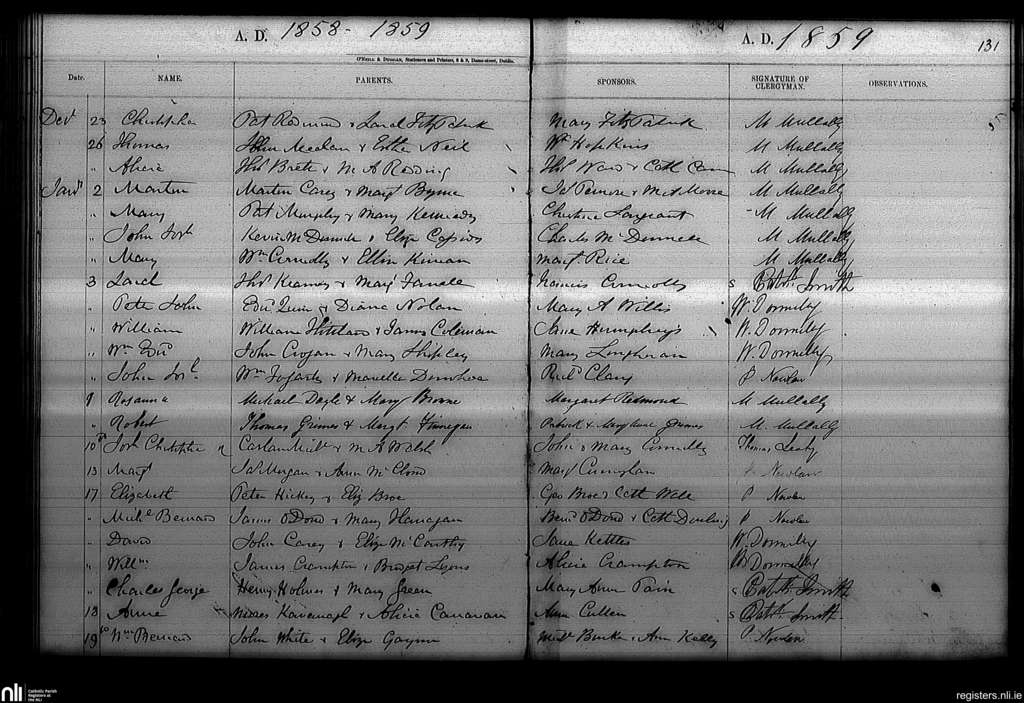 A. D. 1858 - 1859 A. D. 1859 131
O'Neill & Duggan, Stationers and Printers, 8 & 9, Dame-street, Dublin.
Date. NAME. PARENTS. SPONSORS. SIGNATURE OF CLERGYMAN. OBSERVATIONS.
Decr 23 Christopher Pat Redmond & Sarah FitzPatrick Mary FitzPatrick M Mullally
26 Thomas John Meehan & Esther Neil Wm Hopkins M Mullally
" Alicia Thos Brett & M A Redding Thos Ward & Cath M Mullally
Jany 2 Martin Martin Carey & Margt Byrne Jas & M A Moore M Mullally
" Mary Pat Murphy & Mary Kennedy Christina Sargeant M Mullally
" John Josh Kevin McDermott & Eliza Charles McDonnell M Mullally
" Mary Wm Connolly & Ellen Kiernan Margt Rice M Mullally
3 Sarah Thos Kearney & Margt Farrell Francis Connolly S Barth. Smith
" Peter John Edwd Quinn & Diana Nolan Mary A Willis W. Donnelly
" William William & James Coleman Jane Humphreys W. Donnelly
" Wm Edwd John Crogan & Mary Shipley Mary W. Donnelly
" John Josh. Wm Fogarty & Marcella Donohoe Richd Clary P Nowlan
9 Rosanna Michael Doyle & Mary Browne Margaret Redmond M Mullally
" Robert Thomas Grimes & Margt Finnegan Patrick & Mary Anne Grimes M. Mullally
10 Josh Christopher & M A Walsh John & Mary Connolly Thomas Leahy
13 Margt Jas Morgan & Anne Margt Cunningham P Nowlan
17 Elizabeth Peter Hickey & Eliz Broe Geo Broe & Cath P Nowlan
" Michl Bernard James O'Dowd & Mary Flanagan Bernd O'Dowd & Cath P Nowlan
" David John Carey & Eliza McCarthy Jane Kettles W. Donnelly
" Willm James Crampton & Bridget Lyons Alicia Crampton W. Donnelly
" Charles George Henry Holmes & Mary Green Mary Anne S Barth. Smith
18 Anne Kavanagh & Alicia Canavan Ann Cullen S Barth. Smith
19 Wm Bernard John White & Eliza Michl Burke & Ann Kelly P. Nowlan
nli Catholic Parish Registers at the NLI registers.nli.ie